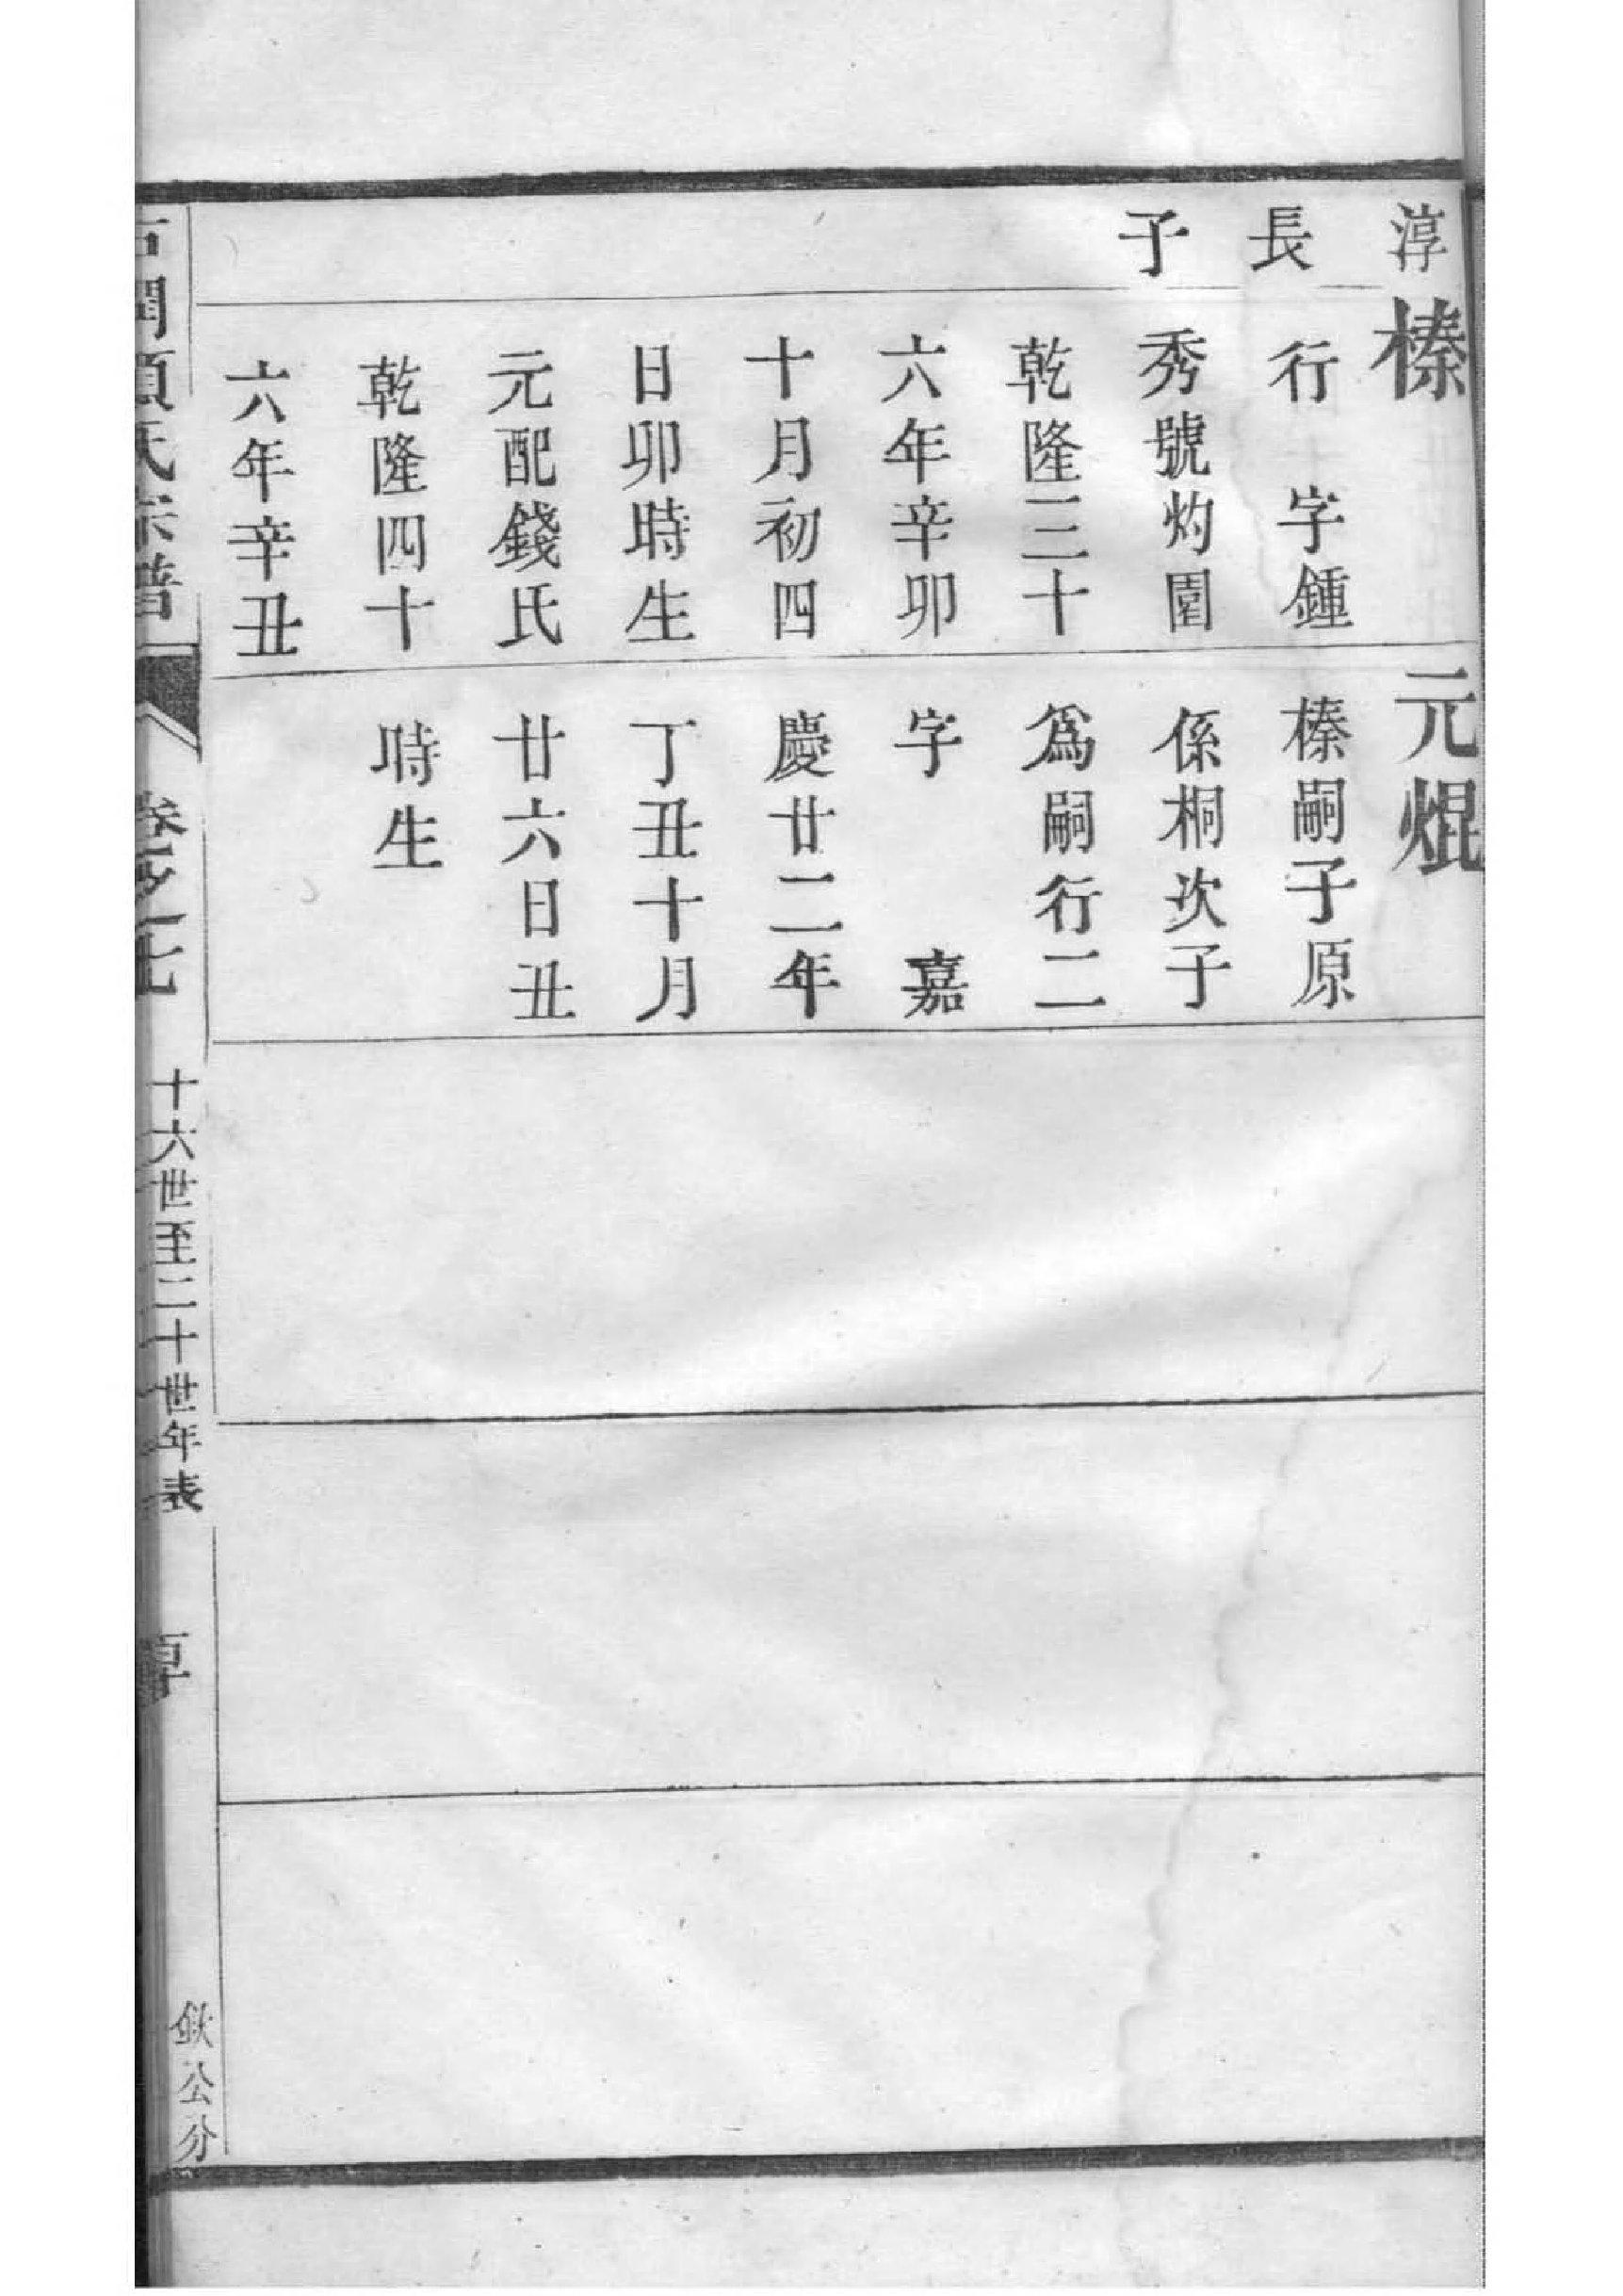 淳
長
子
榛
行 字鍾
秀號灼園
乾隆三十
六年辛卯
十月初四
日卯時生
元配錢氏
乾隆四十
六年辛丑
元焜
榛嗣子原
係桐次子
爲嗣行二
字 嘉
慶廿二年
丁丑十月
廿六日丑
時生
氏宗譜
卷之七
十六世至二十世年表
欽公分